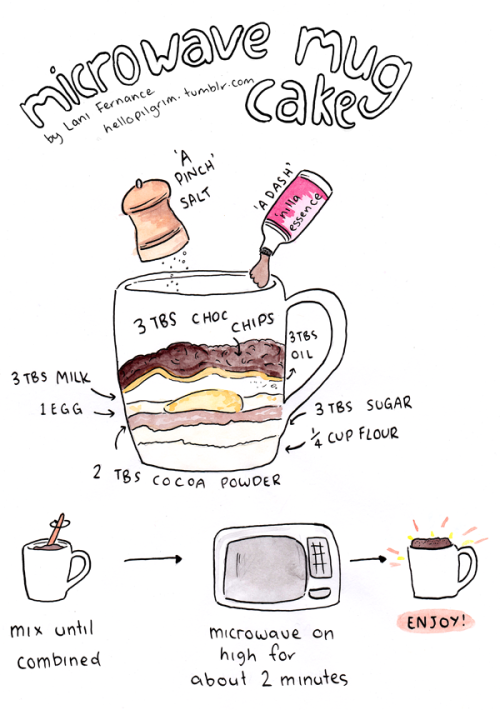 microwave mug
cake
by Lani Fernance
hellopilgrim.tumblr.com
'A
PINCH'
SALT
'A DASH'
'nilla
essence
3 TBS CHOC CHIPS
3 TBS
OIL
3 TBS MILK
1 EGG
3 TBS SUGAR
1/4 CUP FLOUR
2 TBS COCOA POWDER
mix until
combined
microwave on
high for
about 2 minutes
ENJOY!